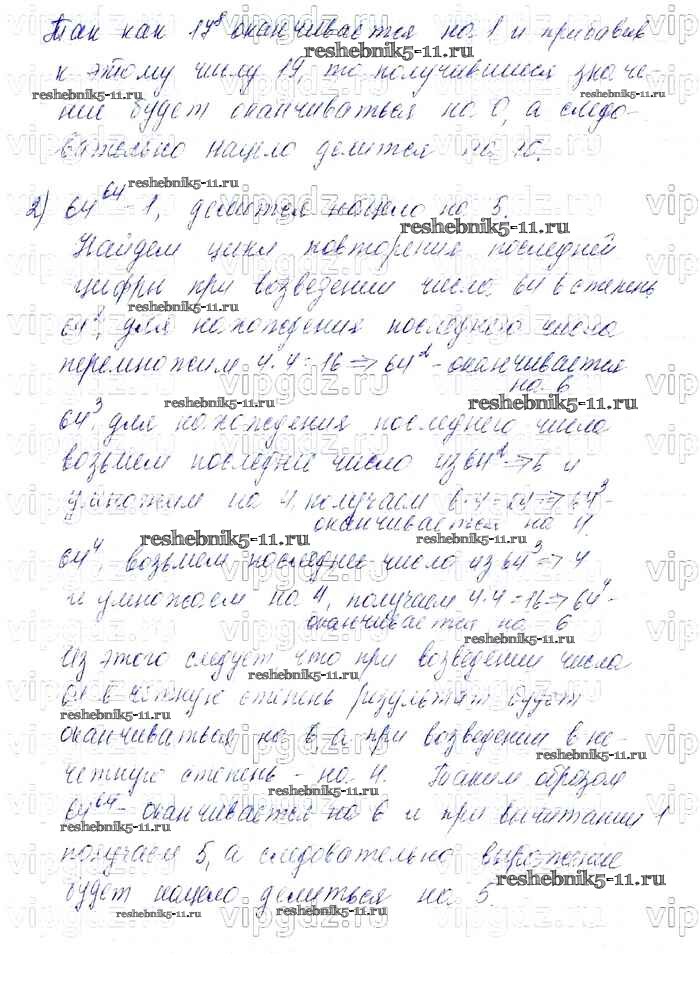 Так как 17⁸ оканчивается на 1 и прибавив
к этому числу 19, то получившееся значе-
ние будет оканчиваться на 0, а следо-
вательно нацело делится на 10.
2) 64⁶⁴ - 1, делится нацело на 5.
Найдем цикл повторения последней
цифры при возведении числа 64 в степень
64², для нахождения последнего числа
перемножим 4·4=16 => 64² - оканчивается
на 6
64³, для нахождения последнего числа
возьмем последнее число из 64² => 6 и
умножим на 4, получаем 6·4=24 => 64³ -
оканчивается на 4.
64⁴, возьмем последнее число из 64³ => 4
и умножаем на 4, получаем 4·4=16 => 64⁴ -
оканчивается на 6
Из этого следует что при возведении числа
64 в четную степень результат будет
оканчиваться на 6, а при возведении в не-
четную степень - на 4. Таким образом
64⁶⁴ - оканчивается на 6 и при вычитании 1
получаем 5, а следовательно выражение
будет нацело делиться на 5.
reshebnik5-11.ru
vipgdz.ru